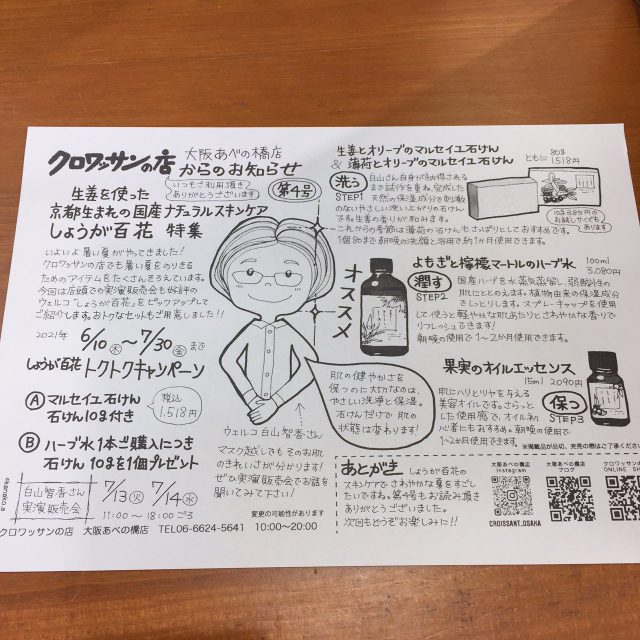 クロワッサンの店 大阪あべの橋店
からのお知らせ
いつもご利用頂き
ありがとうございます
第4号
生姜を使った
京都生まれの国産ナチュラルスキンケア
しょうが百花 特集
いよいよ暑い夏がやってきました!
クロワッサンの店でも暑い夏をのりきる
ためのアイテムをたくさんそろえています。
今回は店頭での実演販売会も好評の
ウェルコ「しょうが百花」をピックアップして
ご紹介します。おトクなセットもご用意しました!!
2021年 6/10(木)~7/30(金)まで
しょうが百花 トクトクキャンペーン
Ⓐ マルセイユ石けん
石けん10g付き
税込
1,518円
Ⓑ ハーブ水1本ご購入につき
石けん10gを1個プレゼント
白山智香さん
実演販売会
7/13(火) 7/14(水)
11:00~18:00ごろ
変更の可能性があります
クロワッサンの店 大阪あべの橋店 TEL06-6624-5641 10:00~20:00
ウェルコ 白山智香さん
マスク越しでもそのお肌
のきれいさが分かります!
ぜひ実演販売会でお話を
聞いてみて下さい!
肌の健やかさを
保つのに大切なのは、
やさしい洗浄と保湿。
石けんだけで肌の
状態は変わります!
オススメ
生姜とオリーブのマルセイユ石けん
&薄荷とオリーブのマルセイユ石けん
80g
ともに 1,518円
洗う
STEP1
白山さん自身が納得される
まで試作を重ね、完成した
天然の保湿成分で刺激
のないやさしい洗い上がりの石けん
です。生姜の香りが和みます。
これからの季節は薄荷の石けんもさっぱりとしておすすめです。
1個80gで朝晩の洗顔と浴用で約1か月使用できます。
10g385円の
お試しサイズも
あります
よもぎと檸檬マートルのハーブ水
100ml
3,080円
潤す
STEP2
国産ハーブを水蒸気蒸留し、弱酸性の
肌にととのえます。植物由来の保湿成分
でしっとりします。スプレーキャップを使用
して使うと軽やかな肌あたりとさわやかな香りで
リフレッシュできます!
朝晩の使用で1~2か月使用できます。
果実のオイルエッセンス
15ml 2090円
保つ
STEP3
肌にハリとツヤを与える
美容オイルです。さらっと
した使用感で、オイル初
心者にもおすすめ。朝晩の使用で
1~2か月使用できます。
※掲載品が品切、完売の際はご了承くださ
あとがき
しょうが百花の
スキンケアでさわやかな夏をすごし
たいですね。第4号もお読み頂き
ありがとうございました。
次回もどうぞお楽しみに!!
大阪あべの橋店
Instagram
CROISSANT.OSAKA
大阪あべの橋店
ブログ
クロワッサンの店
ONLINE